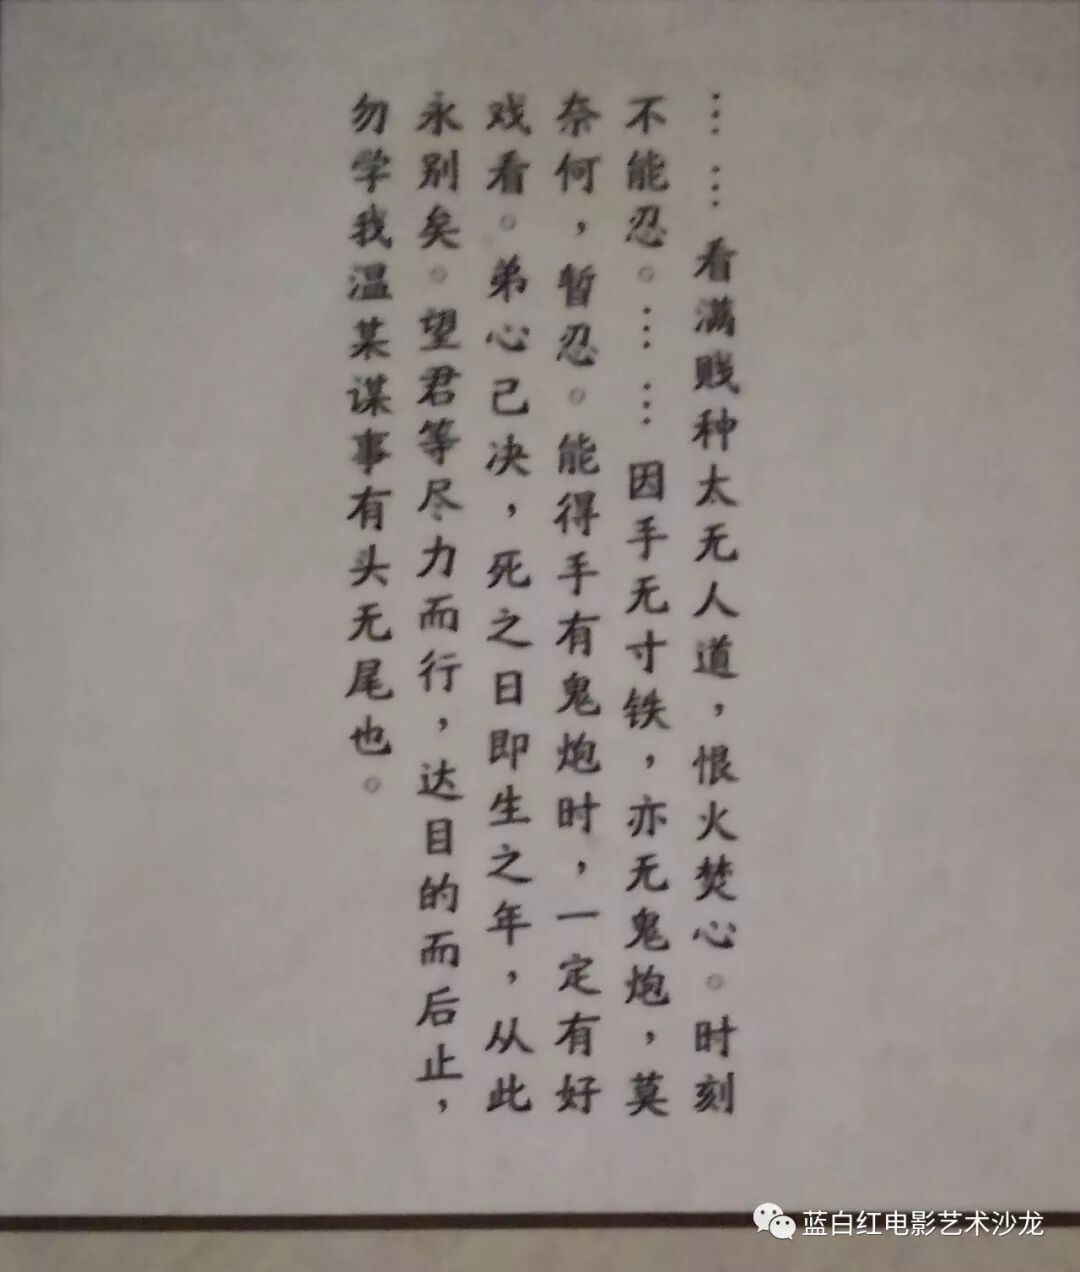 ……看满贱种太无人道，恨火焚心。时刻
不能忍。……因手无寸铁，亦无鬼炮，莫
奈何，暂忍。能得手有鬼炮时，一定有好
戏看。弟心己决，死之日即生之年，从此
永别矣。望君等尽力而行，达目的而后止，
勿学我温某谋事有头无尾也。
蓝白红电影艺术沙龙